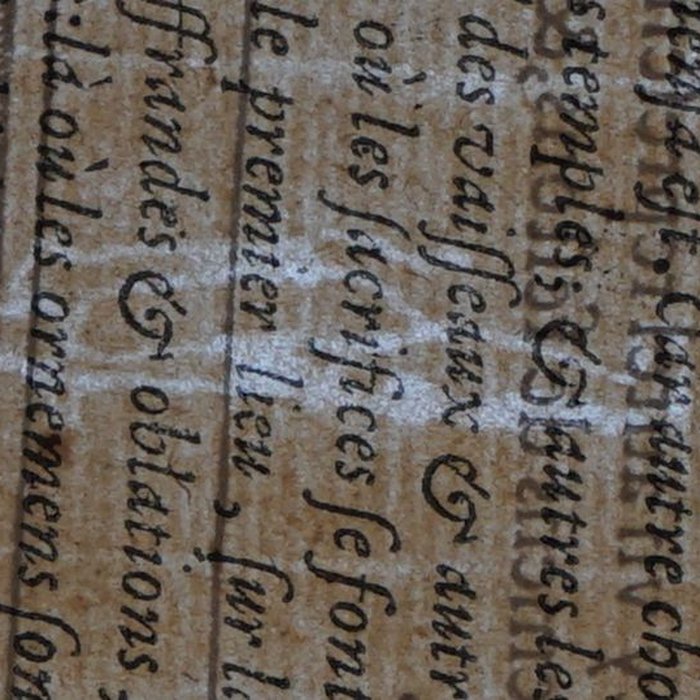 Car autre cho
stemples & autres le
des vaiſſeaux & autr
où les ſacrifices ſe font
le premier lieu, ſur l
ffrandes & oblations
là où les ornemens ſon